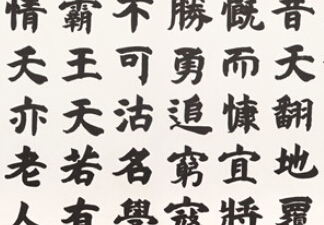 昔天翻地覆
慨而慷宜將
勝勇追窮寇
不可沽名學
霸王天若有
情天亦老人